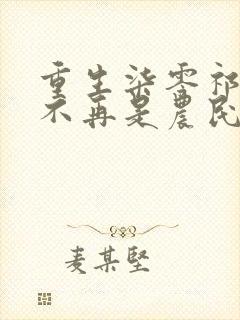 重生柒零祁
不再是農民
麦某堅